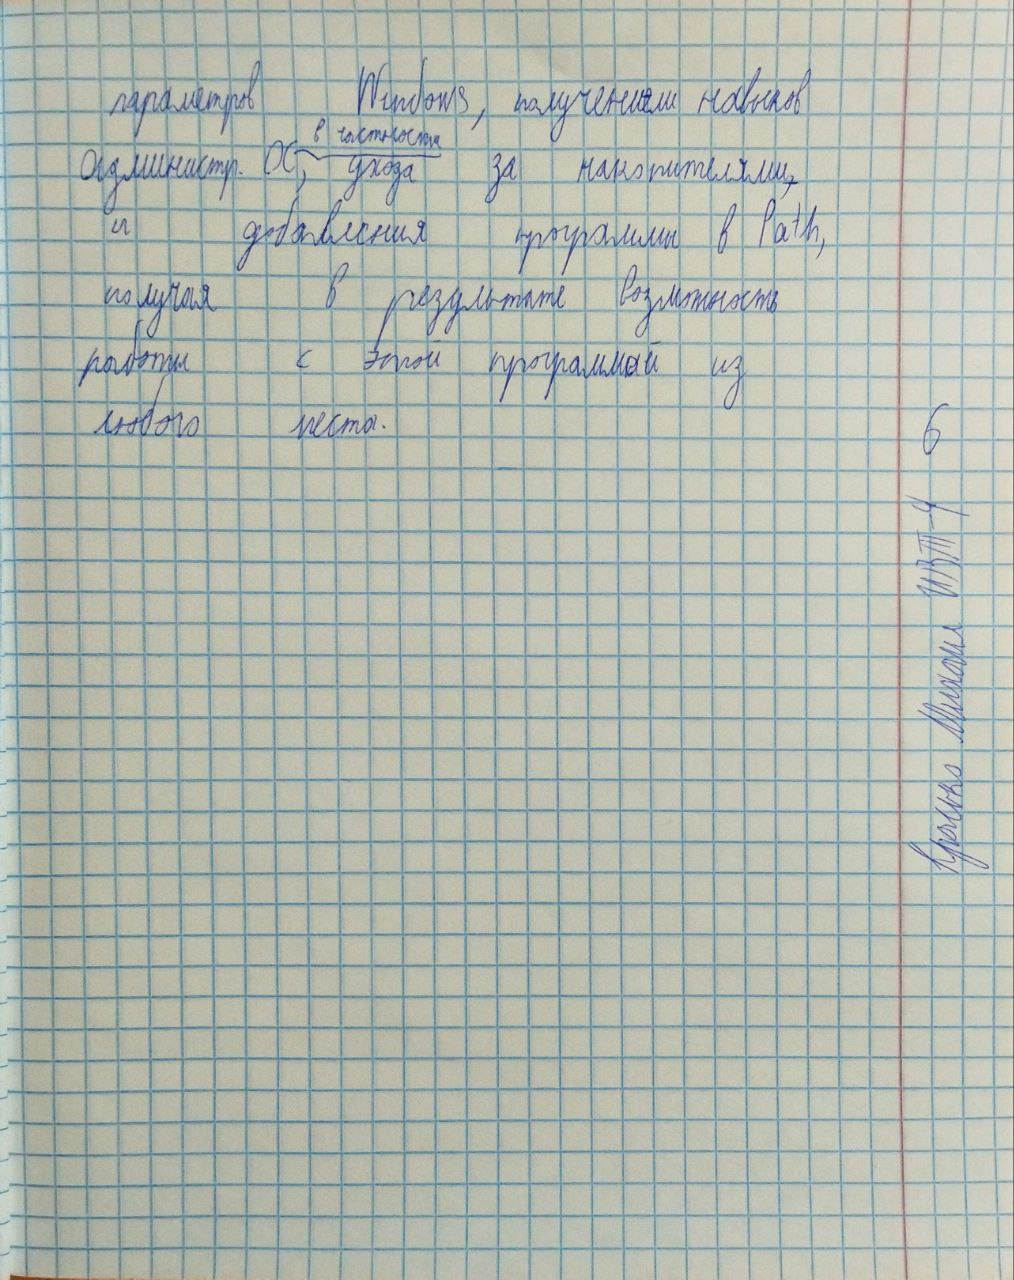 параметров Windows, получением навыков
администр. ОС, в частности
ухода за накопителями,
и добавления программы в Path,
получая в результате возможность
работы с этой программой из
любого места.
6
Михаил ИВТ-4